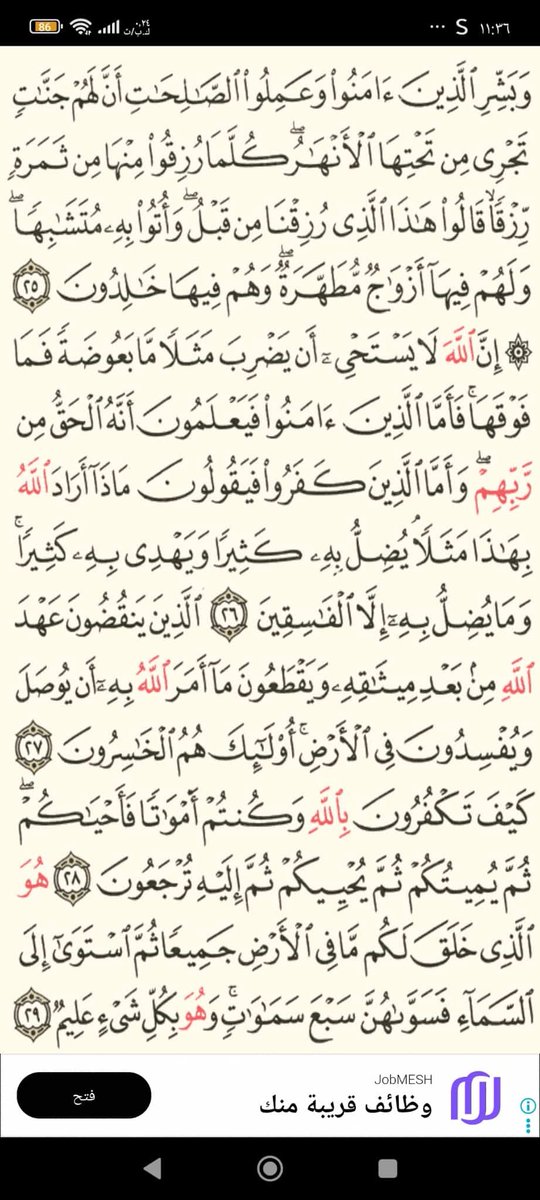 86 ٠٫٢٤ ك.ب/ث ... S ١١:٣٦
وَبَشِّرِ ٱلَّذِينَ ءَامَنُواْ وَعَمِلُواْ ٱلصَّـٰلِحَـٰتِ أَنَّ لَهُمْ جَنَّـٰتٍ
تَجْرِى مِن تَحْتِهَا ٱلْأَنْهَـٰرُ ۖ كُلَّمَا رُزِقُواْ مِنْهَا مِن ثَمَرَةٍ
رِّزْقًا ۙ قَالُواْ هَـٰذَا ٱلَّذِى رُزِقْنَا مِن قَبْلُ ۖ وَأُتُواْ بِهِۦ مُتَشَـٰبِهًا ۖ
وَلَهُمْ فِيهَآ أَزْوَٰجٌ مُّطَهَّرَةٌ ۖ وَهُمْ فِيهَا خَـٰلِدُونَ ٢٥
۞ إِنَّ ٱللَّهَ لَا يَسْتَحْىِۦٓ أَن يَضْرِبَ مَثَلًا مَّا بَعُوضَةً فَمَا
فَوْقَهَا ۚ فَأَمَّا ٱلَّذِينَ ءَامَنُواْ فَيَعْلَمُونَ أَنَّهُ ٱلْحَقُّ مِن
رَّبِّهِمْ ۖ وَأَمَّا ٱلَّذِينَ كَفَرُواْ فَيَقُولُونَ مَاذَآ أَرَادَ ٱللَّهُ
بِهَـٰذَا مَثَلًا ۘ يُضِلُّ بِهِۦ كَثِيرًا وَيَهْدِى بِهِۦ كَثِيرًا ۚ
وَمَا يُضِلُّ بِهِۦٓ إِلَّا ٱلْفَـٰسِقِينَ ٢٦ ٱلَّذِينَ يَنقُضُونَ عَهْدَ
ٱللَّهِ مِنۢ بَعْدِ مِيثَـٰقِهِۦ وَيَقْطَعُونَ مَآ أَمَرَ ٱللَّهُ بِهِۦٓ أَن يُوصَلَ
وَيُفْسِدُونَ فِى ٱلْأَرْضِ ۚ أُوْلَـٰٓئِكَ هُمُ ٱلْخَـٰسِرُونَ ٢٧
كَيْفَ تَكْفُرُونَ بِٱللَّهِ وَكُنتُمْ أَمْوَٰتًا فَأَحْيَـٰكُمْ ۖ
ثُمَّ يُمِيتُكُمْ ثُمَّ يُحْيِيكُمْ ثُمَّ إِلَيْهِ تُرْجَعُونَ ٢٨ هُوَ
ٱلَّذِى خَلَقَ لَكُم مَّا فِى ٱلْأَرْضِ جَمِيعًا ثُمَّ ٱسْتَوَىٰٓ إِلَى
ٱلسَّمَآءِ فَسَوَّىٰهُنَّ سَبْعَ سَمَـٰوَٰتٍ ۚ وَهُوَ بِكُلِّ شَىْءٍ عَلِيمٌ ٢٩
JobMESH
وظائف قريبة منك
فتح